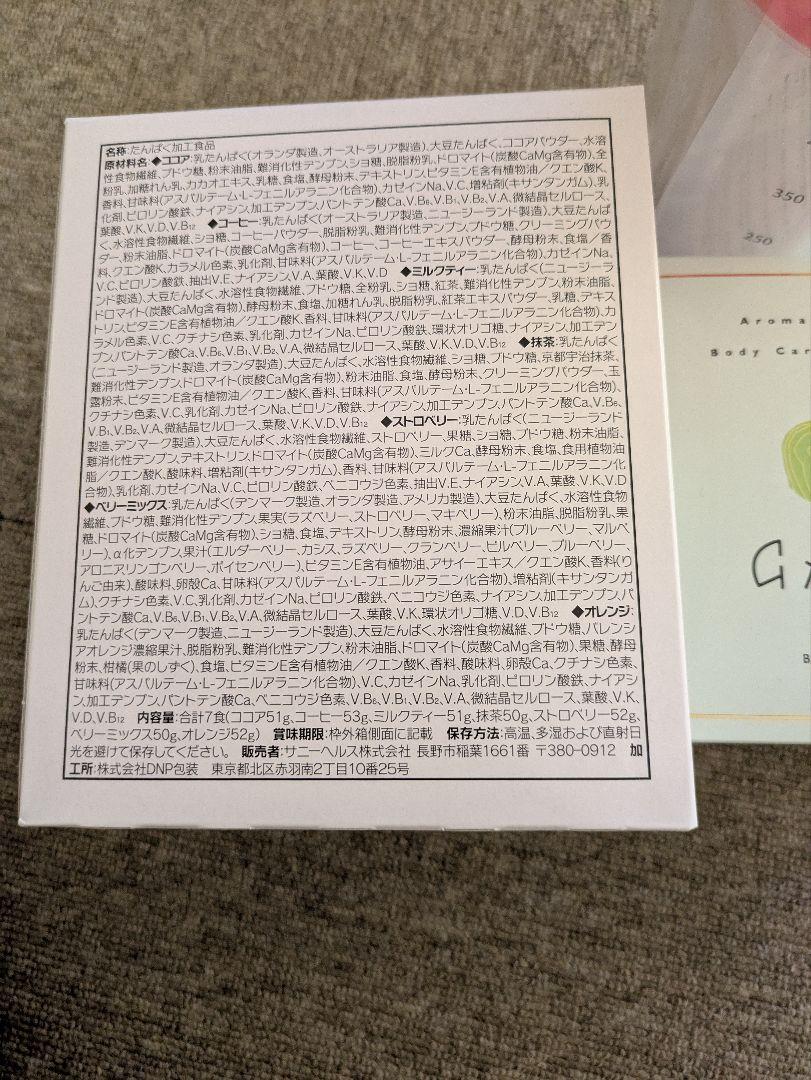 名称:たんぱく加工食品
原材料名:◆ココア:乳たんぱく(オランダ製造、オーストラリア製造)、大豆たんぱく、ココアパウダー、水溶
性食物繊維、ブドウ糖、粉末油脂、難消化性デンプン、ショ糖、脱脂粉乳、ドロマイト(炭酸CaMg含有物)、全
粉乳、加糖れん乳、カカオエキス、乳糖、食塩、酵母粉末、デキストリン、ビタミンE含有植物油/クエン酸K、
香料、甘味料(アスパルテーム・L-フェニルアラニン化合物)、カゼインNa、V.C、増粘剤(キサンタンガム)、乳
化剤、ピロリン酸鉄、ナイアシン、加工デンプン、パントテン酸Ca、V.B₆、V.B₁、V.B₂、V.A、微結晶セルロース、
葉酸、V.K、V.D、V.B₁₂ ◆コーヒー:乳たんぱく(オーストラリア製造、ニュージーランド製造)、大豆たんぱ
く、水溶性食物繊維、ショ糖、コーヒーパウダー、脱脂粉乳、難消化性デンプン、ブドウ糖、クリーミングパウ
ダー、粉末油脂、ドロマイト(炭酸CaMg含有物)、コーヒー、コーヒーエキスパウダー、酵母粉末、食塩/香
料、クエン酸K、カラメル色素、乳化剤、甘味料(アスパルテーム・L-フェニルアラニン化合物)、カゼインNa、
V.C、ピロリン酸鉄、抽出V.E、ナイアシン、V.A、葉酸、V.K、V.D ◆ミルクティー:乳たんぱく(ニュージーラ
ンド製造)、大豆たんぱく、水溶性食物繊維、ブドウ糖、全粉乳、ショ糖、紅茶、難消化性デンプン、粉末油脂、
ドロマイト(炭酸CaMg含有物)、酵母粉末、食塩、加糖れん乳、脱脂粉乳、紅茶エキスパウダー、乳糖、デキス
トリン、ビタミンE含有植物油/クエン酸K、香料、甘味料(アスパルテーム・L-フェニルアラニン化合物)、カ
ラメル色素、V.C、クチナシ色素、乳化剤、カゼインNa、ピロリン酸鉄、環状オリゴ糖、ナイアシン、加工デン
プン、パントテン酸Ca、V.B₆、V.B₁、V.B₂、V.A、微結晶セルロース、葉酸、V.K、V.D、V.B₁₂ ◆抹茶:乳たんぱく
(ニュージーランド製造、オランダ製造)、大豆たんぱく、水溶性食物繊維、ショ糖、ブドウ糖、京都宇治抹茶、
難消化性デンプン、ドロマイト(炭酸CaMg含有物)、粉末油脂、食塩、酵母粉末、クリーミングパウダー、玉
露粉末、ビタミンE含有植物油/クエン酸K、香料、甘味料(アスパルテーム・L-フェニルアラニン化合物)、
クチナシ色素、V.C、乳化剤、カゼインNa、ピロリン酸鉄、ナイアシン、加工デンプン、パントテン酸Ca、V.B₆、
V.B₁、V.B₂、V.A、微結晶セルロース、葉酸、V.K、V.D、V.B₁₂ ◆ストロベリー:乳たんぱく(ニュージーランド
製造、デンマーク製造)、大豆たんぱく、水溶性食物繊維、ストロベリー、果糖、ショ糖、ブドウ糖、粉末油脂、
難消化性デンプン、デキストリン、ドロマイト(炭酸CaMg含有物)、ミルクCa、酵母粉末、食塩、食用植物油
脂/クエン酸K、酸味料、増粘剤(キサンタンガム)、香料、甘味料(アスパルテーム・L-フェニルアラニン化
合物)、乳化剤、カゼインNa、V.C、ピロリン酸鉄、ベニコウジ色素、抽出V.E、ナイアシン、V.A、葉酸、V.K、V.D
◆ベリーミックス:乳たんぱく(デンマーク製造、オランダ製造、アメリカ製造)、大豆たんぱく、水溶性食物
繊維、ブドウ糖、難消化性デンプン、果実(ラズベリー、ストロベリー、マキベリー)、粉末油脂、脱脂粉乳、果
糖、ドロマイト(炭酸CaMg含有物)、ショ糖、食塩、デキストリン、酵母粉末、濃縮果汁(ブルーベリー、マルベ
リー)、α化デンプン、果汁(エルダーベリー、カシス、ラズベリー、クランベリー、ビルベリー、ブルーベリー、
アロニアリンゴンベリー、ボイセンベリー)、ビタミンE含有植物油、アサイーエキス/クエン酸K、香料(り
んご由来)、酸味料、卵殻Ca、甘味料(アスパルテーム・L-フェニルアラニン化合物)、増粘剤(キサンタンガ
ム)、クチナシ色素、V.C、乳化剤、カゼインNa、ピロリン酸鉄、ベニコウジ色素、ナイアシン、加工デンプン、パ
ントテン酸Ca、V.B₆、V.B₁、V.B₂、V.A、微結晶セルロース、葉酸、V.K、環状オリゴ糖、V.D、V.B₁₂ ◆オレンジ:
乳たんぱく(デンマーク製造、ニュージーランド製造)、大豆たんぱく、水溶性食物繊維、ブドウ糖、バレンシ
アオレンジ濃縮果汁、脱脂粉乳、難消化性デンプン、粉末油脂、ドロマイト(炭酸CaMg含有物)、果糖、酵母
粉末、柑橘(果のしずく)、食塩、ビタミンE含有植物油/クエン酸K、香料、酸味料、卵殻Ca、クチナシ色素、
甘味料(アスパルテーム・L-フェニルアラニン化合物)、V.C、カゼインNa、乳化剤、ピロリン酸鉄、ナイアシ
ン、加工デンプン、パントテン酸Ca、ベニコウジ色素、V.B₆、V.B₁、V.B₂、V.A、微結晶セルロース、葉酸、V.K、
V.D、V.B₁₂ 内容量:合計7食(ココア51g、コーヒー53g、ミルクティー51g、抹茶50g、ストロベリー52g、
ベリーミックス50g、オレンジ52g) 賞味期限:枠外箱側面に記載 保存方法:高温、多湿および直射日
光を避けて保存してください。 販売者:サニーヘルス株式会社 長野市稲葉1661番 〒380-0912 加
工所:株式会社DNP包装 東京都北区赤羽南2丁目10番25号
350
250
Aroma
Body Car